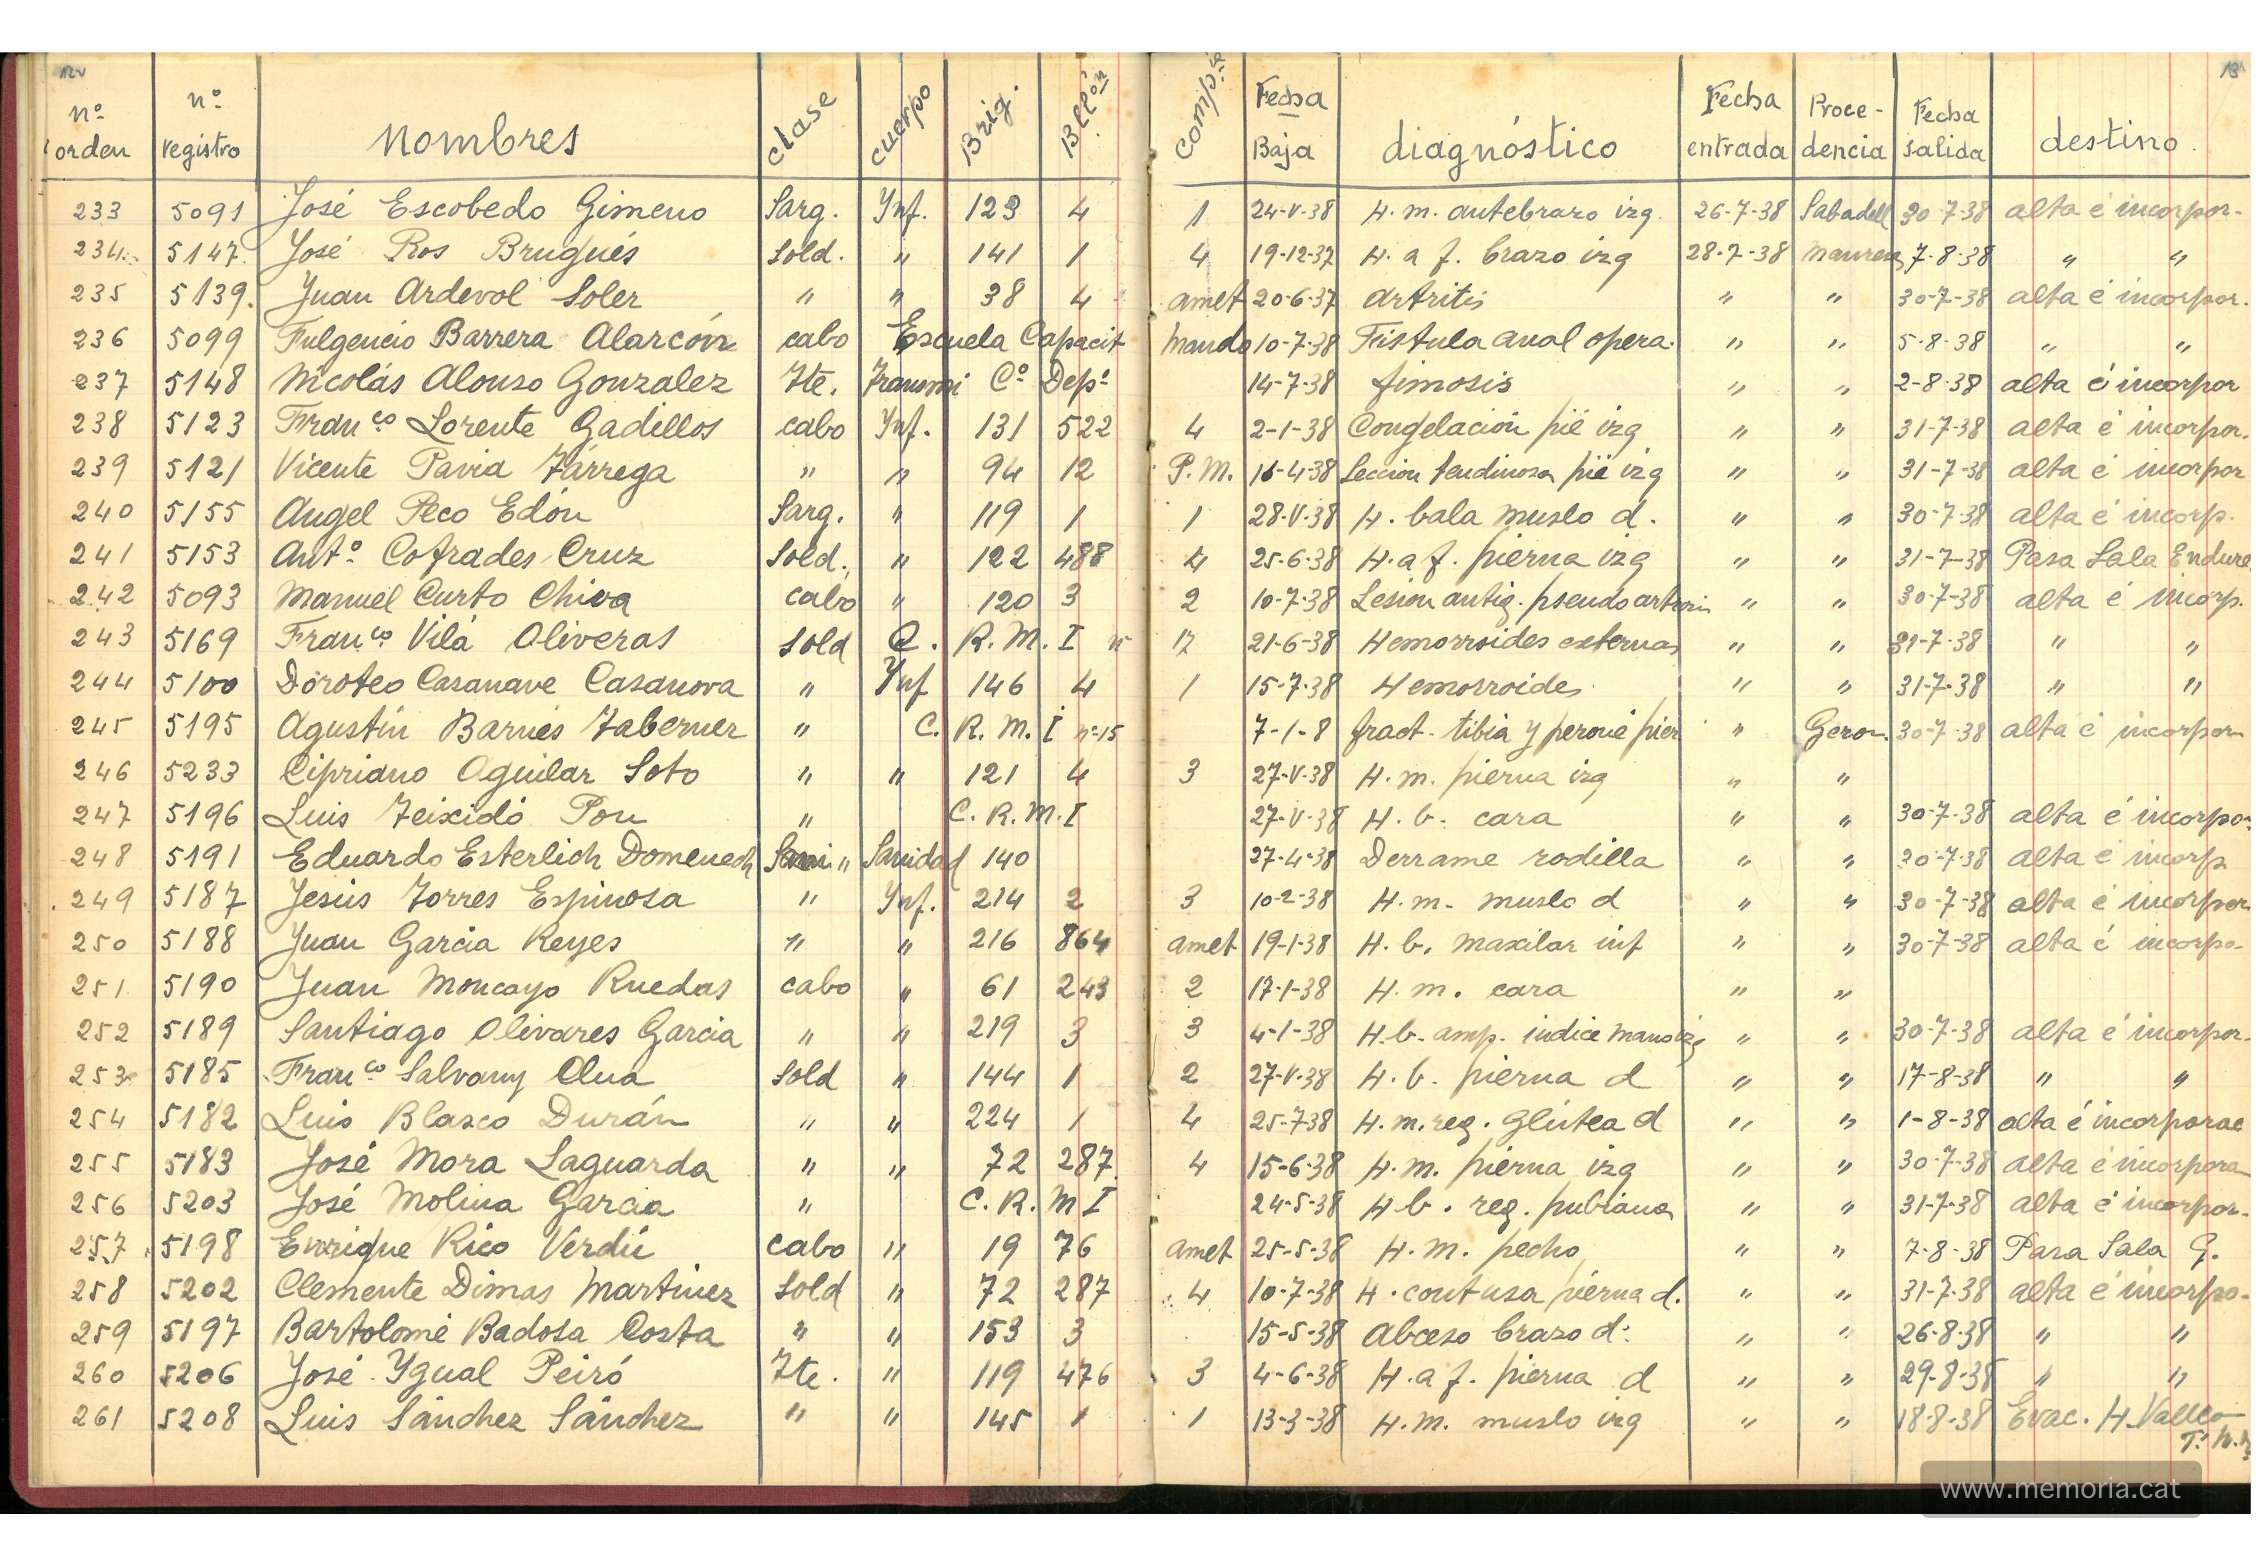 nº orden nº registro nombres clase cuerpo Brig. Bllón Compª Fecha Baja diagnóstico Fecha entrada Procedencia Fecha salida destino
233 5091 José Escobedo Gimeno Sarg. Ynf. 123 4 1 24-V-38 H. m. antebrazo izq. 26-7-38 Sabadell 30-7-38 alta é incorpor-
234 5147 José Ros Brugués Sold. " 141 1 4 19-12-37 H. a f. brazo izq 28-7-38 Manresa 7-8-38 " "
235 5139. Juan Ardevol Soler " " 38 4 amet 20-6-37 artritis " " 30-7-38 alta é incorpor.
236 5099 Fulgencio Barrera Alarcón cabo Escuela Capacit mando 10-7-38 Fistula anal opera. " " 5-8-38 " "
237 5148 Nicolás Alonso Gonzalez Tte. Transmi Cº Depº 14-7-38 fimosis " " 2-8-38 alta é incorpor
238 5123 Franco Lorente Gadillos cabo Ynf. 131 522 4 2-1-38 Congelación pié izq " " 31-7-38 alta é incorpor.
239 5121 Vicente Pavia Tárrega " " 94 12 P. M. 16-4-38 Seccion tendinosa pié izq " " 31-7-38 alta é incorpor
240 5155 Angel Peco Edón Sarg. " 119 1 1 28-V-38 H. bala muslo d. " " 30-7-38 alta é incorp.
241 5153 Antº Cofrades Cruz Sold. " 122 488 4 25-6-38 H. a f. pierna izq " " 31-7-38 Pasa Sala Endure
242 5093 Manuel Curto Chiva cabo " 120 3 2 10-7-38 Lesion antig. pseudo " " 30-7-38 alta é incorp.
243 5169 Franco Vilá Oliveras Sold C. R. M. I 21-6-38 Hemorroides externas " " 31-7-38 " "
244 5100 Doroteo Casanave Casanova " Ynf 146 4 1 15-7-38 Hemorroides " " 31-7-38 " "
245 5195 Agustín Barnés Taberner " C. R. M. I nº 15 7-1-8 fract. tibia y peroné pier " Geron. 30-7-38 alta é incorpor
246 5233 Cipriano Aguilar Soto " " 121 4 3 27-V-38 H. m. pierna izq " "
247 5196 Luis Teixidó Pou " C. R. M. I 27-V-38 H. b. cara " " 30-7-38 alta é incorpor
248 5191 Eduardo Esterlich Domenech " Sanidad 140 27-4-38 Derrame rodilla " " 30-7-38 alta é incorp
249 5187 Jesús Torres Espinosa " Ynf. 214 2 3 10-2-38 H. m. muslo d " " 30-7-38 alta é incorpor
250 5188 Juan Garcia Reyes " " 216 864 amet 19-1-38 H. b. maxilar inf " " 30-7-38 alta é incorpo-
251 5190 Juan Moncayo Ruedas cabo " 61 243 2 17-1-38 H. m. cara " "
252 5189 Santiago Olivares Garcia " " 219 3 3 4-1-38 H. b. amp. indice mano izq " " 30-7-38 alta é incorpor.
253 5185 Franco Salvany Clua Sold " 144 1 2 27-V-38 H. b. pierna d " " 17-8-38 " "
254 5182 Luis Blasco Durán " " 224 1 4 25-7-38 H. m. reg. Glútea d " " 1-8-38 alta é incorporac
255 5183 José Mora Laguarda " " 72 287 4 15-6-38 H. m. pierna izq " " 30-7-38 alta é incorpora
256 5203 José Molina Garcia " C. R. M I 24-5-38 H b. reg. pubiana " " 31-7-38 alta é incorpor.
257 5198 Enrique Rico Verdú cabo " 19 76 amet 25-5-38 H. m. pecho " " 7-8-38 Para Sala G.
258 5202 Clemente Dimas Martinez Sold " 72 287 4 10-7-38 H. contusa pierna d. " " 31-7-38 alta é incorpo-
259 5197 Bartolomé Badosa Costa " " 153 3 15-5-38 Absceso brazo d. " " 26-8-38 " "
260 5206 José Ygual Peiró Tte. " 119 476 3 4-6-38 H. a f. pierna d " " 29-8-38 " "
261 5208 Luis Sánchez Sánchez " " 145 1 1 13-3-38 H. m. muslo izq " " 18-8-38 Evac. H.
www.memoria.cat